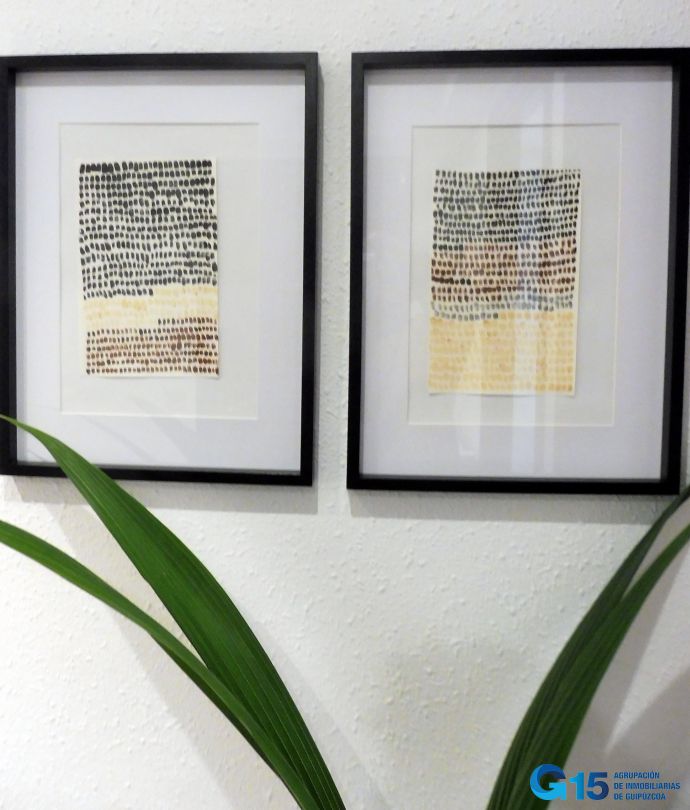 G15
AGRUPACIÓN
DE INMOBILIARIAS
DE GUIPÚZCOA